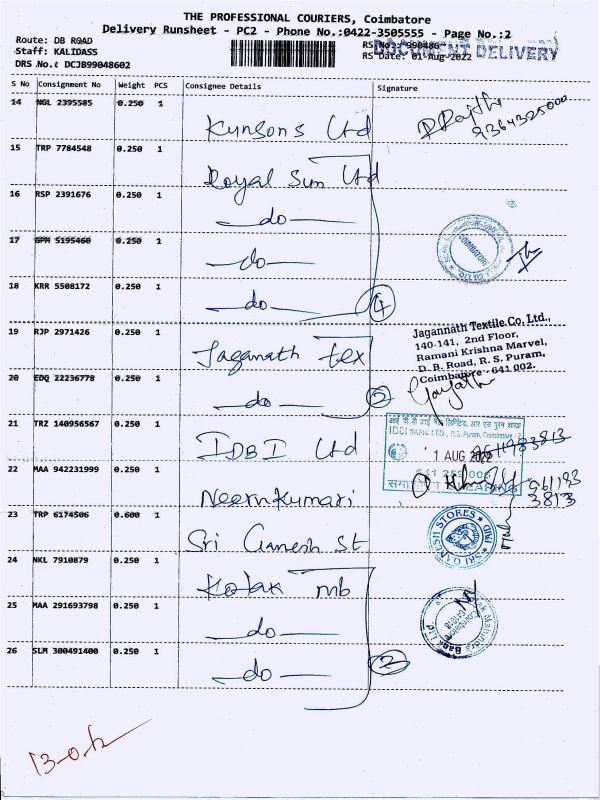 THE PROFESSIONAL COURIERS, Coimbatore
Delivery Runsheet - PC2 - Phone No.:0422-3505555 - Page No.:2
Route: DB ROAD
Staff: KALIDASS
DRS No.: DCJB99048602
RS No.: 990486
RS Date: 01-Aug-2022
DOCUMENT DELIVERY
S No Consignment No Weight PCS Consignee Details Signature
14 NGL 2395585 0.250 1 Kunsons Ltd
9364325000
15 TRP 7784548 0.250 1 Royal Sun Ltd
16 RSP 2391676 0.250 1 do
17 GPM 5195460 0.250 1 do
COIMBATORE
18 KRR 5508172 0.250 1 do 4
19 RJP 2971426 0.250 1 Jaganath tex
Jagannath Textile Co. Ltd.,
140-141, 2nd Floor,
Ramani Krishna Marvel,
D. B. Road, R. S. Puram,
Coimbatore - 641 002.
20 EDQ 22236778 0.250 1 do 2
Gayathri
21 TRZ 140956567 0.250 1 IDBI Ltd
IDBI BANK LTD., R.S. Puram, Coimbatore
1 AUG 2022
22 MAA 942231999 0.250 1 Neernkumari
23 TRP 6174506 0.600 1 Sri Ganesh St
SRI GANESH STORES
24 NKL 7910879 0.250 1 Kotak mb
25 MAA 291693798 0.250 1 do
Kotak Mahindra Bank Ltd
Coimbatore
26 SLM 300491400 0.250 1 do 3